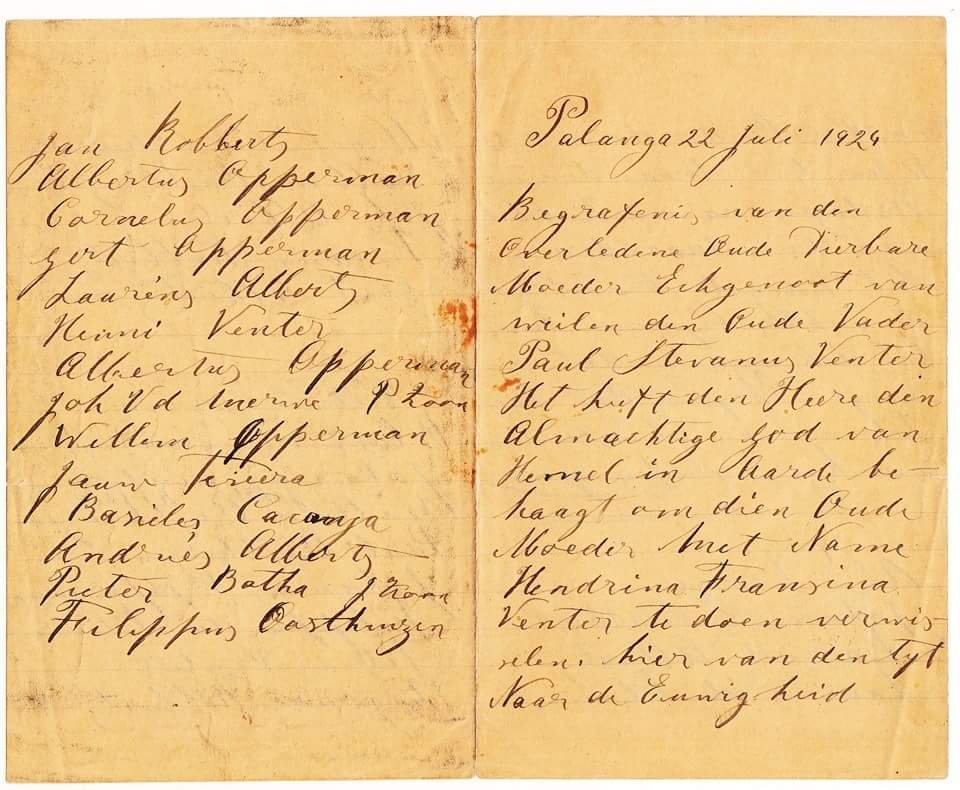 Jan Robberts
Albertus Opperman
Cornelus Opperman
gert Opperman
Lauréns Alberts
Henni Venter
Albertus Opperman
Joh Vd Merwe P zoon
Willem Opperman
Andriés Alberts
Pieter Botha J zoon
Filippus Oosthuizen
Palanga 22 Juli 1924
Begrafenis van den
Overledene Oude Dierbare
Moeder Echgenoot van
weilen den Oude Vader
Paul Stevanus Venter
Het heeft den Heere den
Almachtige God van
Hemel in Aarde be-
haagt om dien Oude
Moeder met Name
Hendrina Fransina
Venter te doen verwis-
selen. hier van den tyt
Naar de Euwigheid